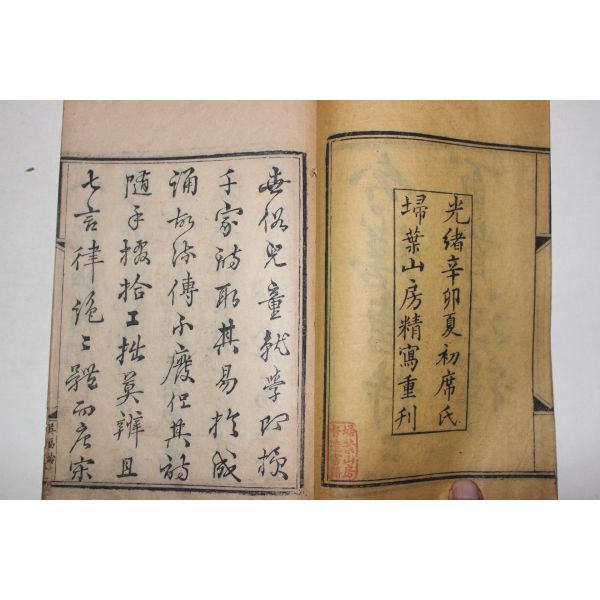 光緒辛卯夏初席氏
埽葉山房精寫重刊
埽葉山房
世俗兒童就學即授
千家詩取其易於成
誦故流傳不廢但其詩
隨手掇拾工拙莫辨且
七言律絕二體而唐宋